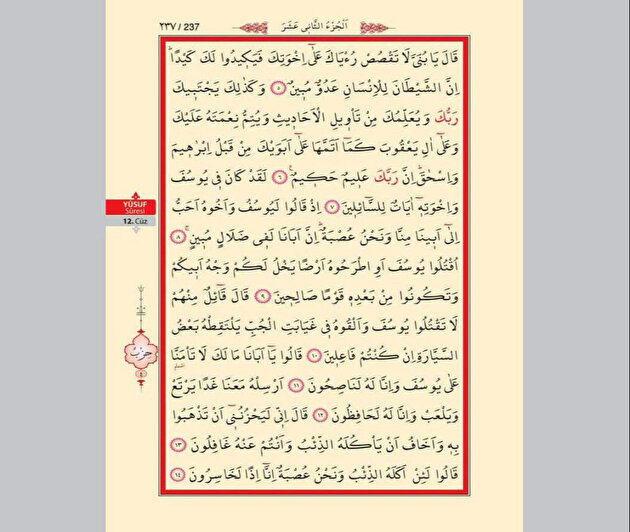 ٢٣٧ / 237
اَلْجُزْءُ الثَّانِى عَشَرَ
قَالَ يَا بُنَىَّ لَا تَقْصُصْ رُءْيَاكَ عَلٰٓى اِخْوَتِكَ فَيَكِيدُوا لَكَ كَيْدًاۜ
اِنَّ الشَّيْطَانَ لِلْاِنْسَانِ عَدُوٌّ مُبِينٌ ﴿٥﴾ وَكَذٰلِكَ يَجْتَبِيكَ
رَبُّكَ وَيُعَلِّمُكَ مِنْ تَأْوِيلِ الْاَحَادِيثِ وَيُتِمُّ نِعْمَتَهُ عَلَيْكَ
وَعَلٰٓى اٰلِ يَعْقُوبَ كَمَٓا اَتَمَّهَا عَلٰٓى اَبَوَيْكَ مِنْ قَبْلُ اِبْرٰهِيمَ
وَاِسْحٰقَۜ اِنَّ رَبَّكَ عَلِيمٌ حَكِيمٌ ﴿٦﴾ لَقَدْ كَانَ فِى يُوسُفَ
وَاِخْوَتِهٖٓ اٰيَاتٌ لِلسَّٓائِلِينَ ﴿٧﴾ اِذْ قَالُوا لَيُوسُفُ وَاَخُوهُ اَحَبُّ
اِلٰٓى اَبِينَا مِنَّا وَنَحْنُ عُصْبَةٌۜ اِنَّ اَبَانَا لَفِى ضَلَالٍ مُبِينٍۚ ﴿٨﴾
اُقْتُلُوا يُوسُفَ اَوِ اطْرَحُوهُ اَرْضًا يَخْلُ لَكُمْ وَجْهُ اَبِيكُمْ
وَتَكُونُوا مِنْ بَعْدِهٖ قَوْمًا صَالِحِينَ ﴿٩﴾ قَالَ قَٓائِلٌ مِنْهُمْ
لَا تَقْتُلُوا يُوسُفَ وَاَلْقُوهُ فِى غَيَابَتِ الْجُبِّ يَلْتَقِطْهُ بَعْضُ
السَّيَّارَةِ اِنْ كُنْتُمْ فَاعِلِينَ ﴿١٠﴾ قَالُوا يَٓا اَبَانَا مَا لَكَ لَا تَأْمَنَّا
عَلٰى يُوسُفَ وَاِنَّا لَهُ لَنَاصِحُونَ ﴿١١﴾ اَرْسِلْهُ مَعَنَا غَدًا يَرْتَعْ
وَيَلْعَبْ وَاِنَّا لَهُ لَحَافِظُونَ ﴿١٢﴾ قَالَ اِنِّى لَيَحْزُنُنِٓى اَنْ تَذْهَبُوا
بِهٖ وَاَخَافُ اَنْ يَأْكُلَهُ الذِّئْبُ وَاَنْتُمْ عَنْهُ غَافِلُونَ ﴿١٣﴾
قَالُوا لَئِنْ اَكَلَهُ الذِّئْبُ وَنَحْنُ عُصْبَةٌ اِنَّٓا اِذًا لَخَاسِرُونَ ﴿١٤﴾
YÛSUF
Sûresi
12. Cüz
حِزْبٌ